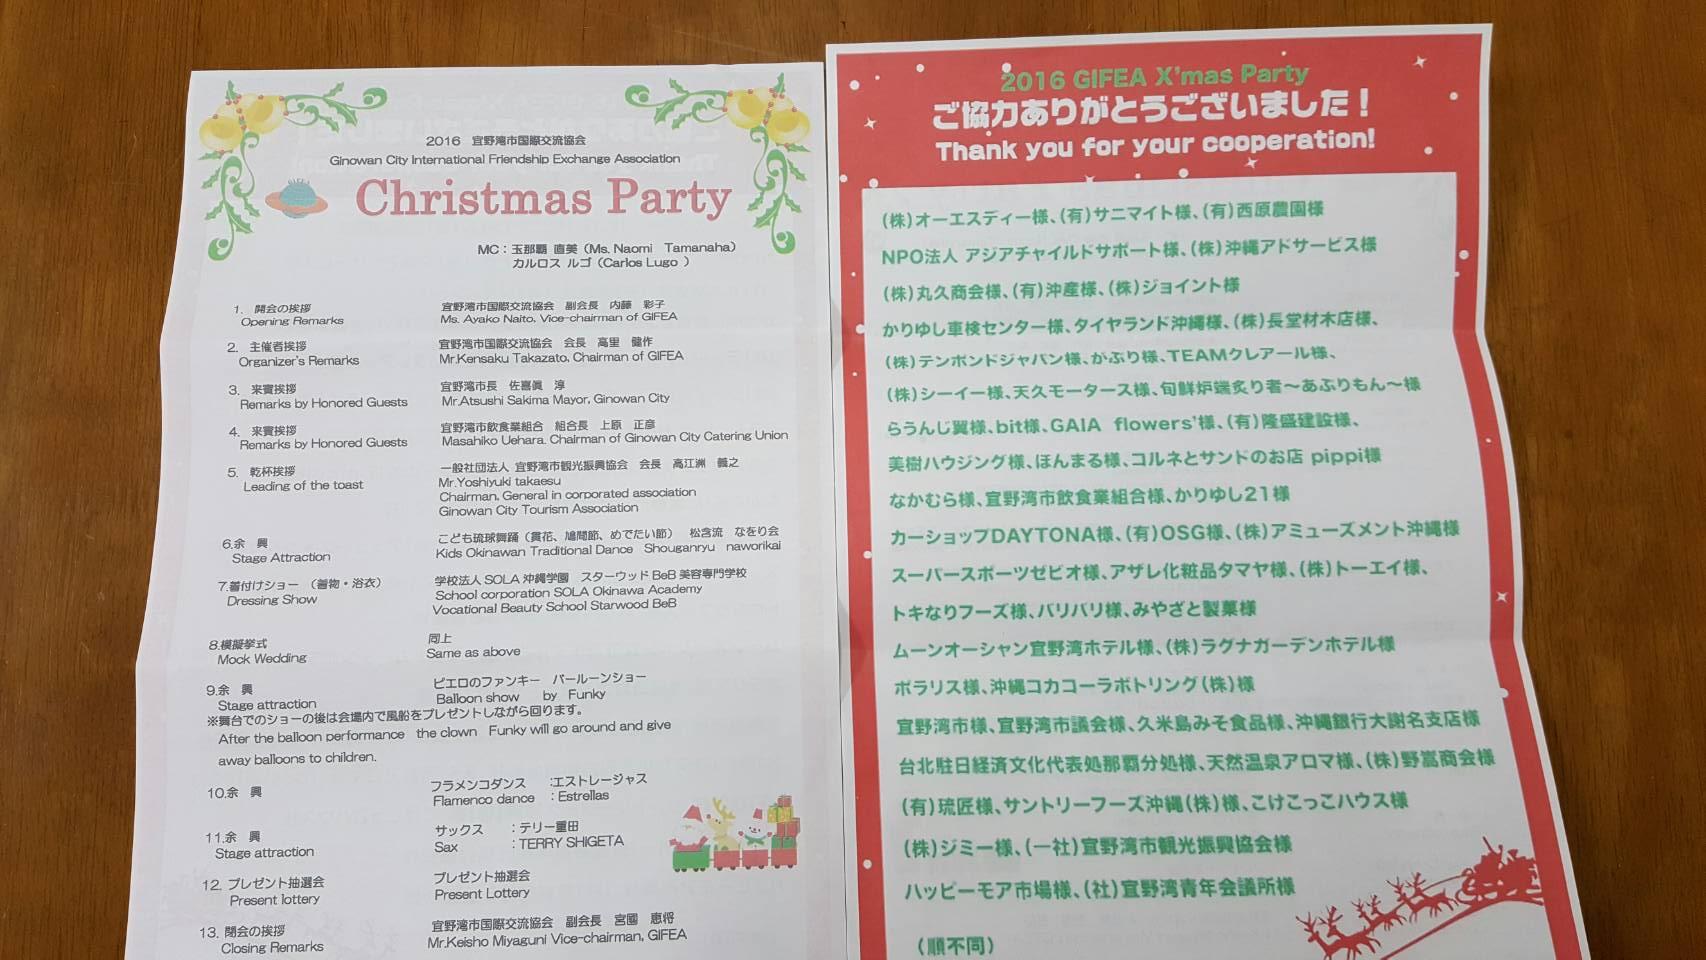 2016 宜野湾市国際交流協会
Ginowan City International Friendship Exchange Association
GIFEA
Christmas Party
MC：玉那覇 直美（Ms. Naomi Tamanaha）
カルロス ルゴ（Carlos Lugo ）
1. 開会の挨拶 宜野湾市国際交流協会 副会長 内藤 彩子
Opening Remarks Ms. Ayako Naito, Vice-chairman of GIFEA
2. 主催者挨拶 宜野湾市国際交流協会 会長 高里 健作
Organizer's Remarks Mr.Kensaku Takazato, Chairman of GIFEA
3. 来賓挨拶 宜野湾市長 佐喜眞 淳
Remarks by Honored Guests Mr.Atsushi Sakima Mayor, Ginowan City
4. 来賓挨拶 宜野湾市飲食業組合 組合長 上原 正彦
Remarks by Honored Guests Masahiko Uehara. Chairman of Ginowan City Catering Union
5. 乾杯挨拶 一般社団法人 宜野湾市観光振興協会 会長 高江洲 義之
Leading of the toast Mr.Yoshiyuki takaesu
Chairman, General in corporated association
Ginowan City Tourism Association
6.余 興 こども琉球舞踊（貫花、鳩間節、めでたい節） 松含流 なをり会
Stage Attraction Kids Okinawan Traditional Dance Shouganryu naworikai
7.着付けショー （着物・浴衣） 学校法人 SOLA 沖縄学園 スターウッド BeB 美容専門学校
Dressing Show School corporation SOLA Okinawa Academy
Vocational Beauty School Starwood BeB
8.模擬挙式 同上
Mock Wedding Same as above
9.余 興 ピエロのファンキー バールーンショー
Stage attraction Balloon show by Funky
※舞台でのショーの後は会場内で風船をプレゼントしながら回ります。
After the balloon performance the clown Funky will go around and give
away balloons to children.
10.余 興 フラメンコダンス ：エストレージャス
Flamenco dance ：Estrellas
11.余 興 サックス ：テリー重田
Stage attraction Sax ：TERRY SHIGETA
12. プレゼント抽選会 プレゼント抽選会
Present lottery Present Lottery
13. 閉会の挨拶 宜野湾市国際交流協会 副会長 宮國 恵将
Closing Remarks Mr.Keisho Miyaguni Vice-chairman, GIFEA
2016 GIFEA X'mas Party
ご協力ありがとうございました！
Thank you for your cooperation!
（株）オーエスディー様、（有）サニマイト様、（有）西原農園様
NPO法人 アジアチャイルドサポート様、（株）沖縄アドサービス様
（株）丸久商会様、（有）沖産様、（株）ジョイント様
かりゆし車検センター様、タイヤランド沖縄様、（株）長堂材木店様、
（株）テンポンドジャパン様、がぶり様、TEAMクレアール様、
（株）シーイー様、天久モータース様、旬鮮炉端炙り者〜あぶりもん〜様
らうんじ翼様、bit様、GAIA flowers'様、（有）隆盛建設様、
美樹ハウジング様、ほんまる様、コルネとサンドのお店 pippi様
なかむら様、宜野湾市飲食業組合様、かりゆし21様
カーショップDAYTONA様、（有）OSG様、（株）アミューズメント沖縄様
スーパースポーツゼビオ様、アザレ化粧品タマヤ様、（株）トーエイ様、
トキなりフーズ様、バリバリ様、みやざと製菓様
ムーンオーシャン宜野湾ホテル様、（株）ラグナガーデンホテル様
ポラリス様、沖縄コカコーラボトリング（株）様
宜野湾市様、宜野湾市議会様、久米島みそ食品様、沖縄銀行大謝名支店様
台北駐日経済文化代表処那覇分処様、天然温泉アロマ様、（株）野嵩商会様
（有）琉匠様、サントリーフーズ沖縄（株）様、こけこっこハウス様
（株）ジミー様、（一社）宜野湾市観光振興協会様
ハッピーモア市場様、（社）宜野湾青年会議所様
（順不同）